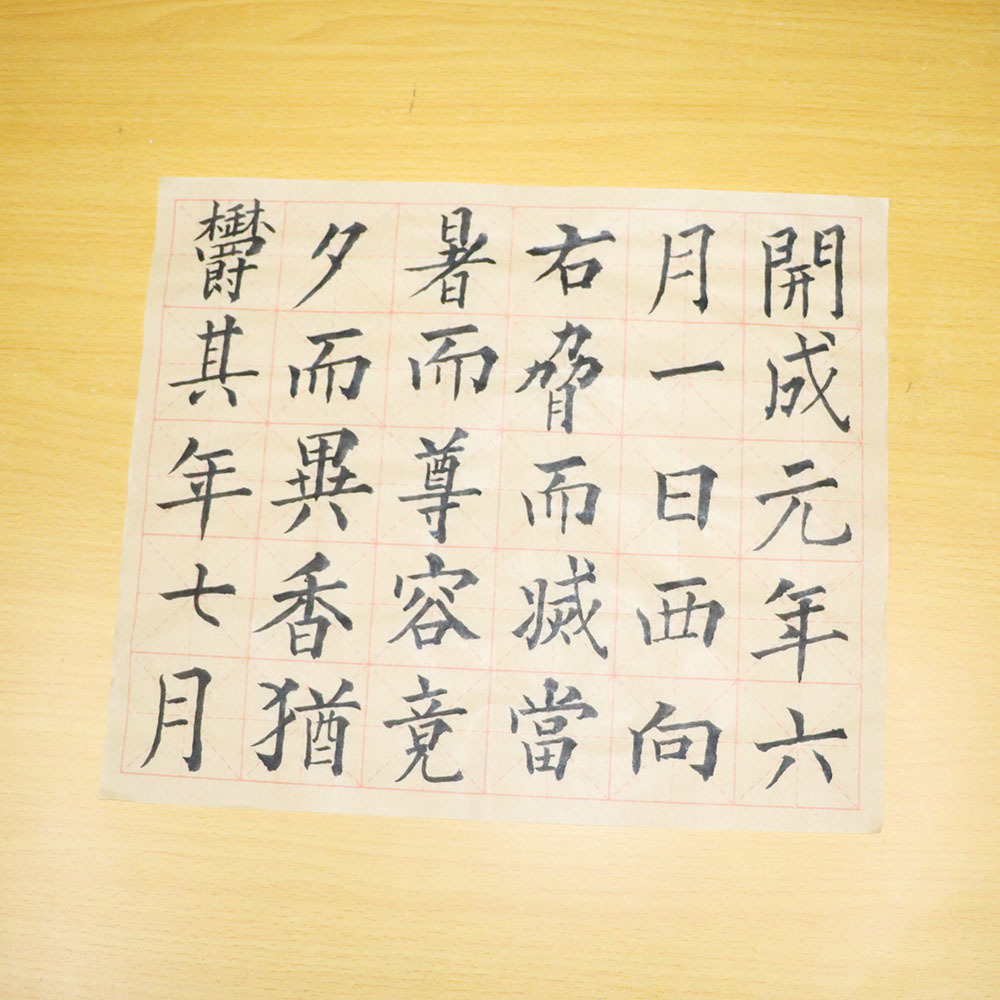 開成元年六
月一日西向
右脅而滅當
暑而尊容竟
夕而異香猶
欝其年七月